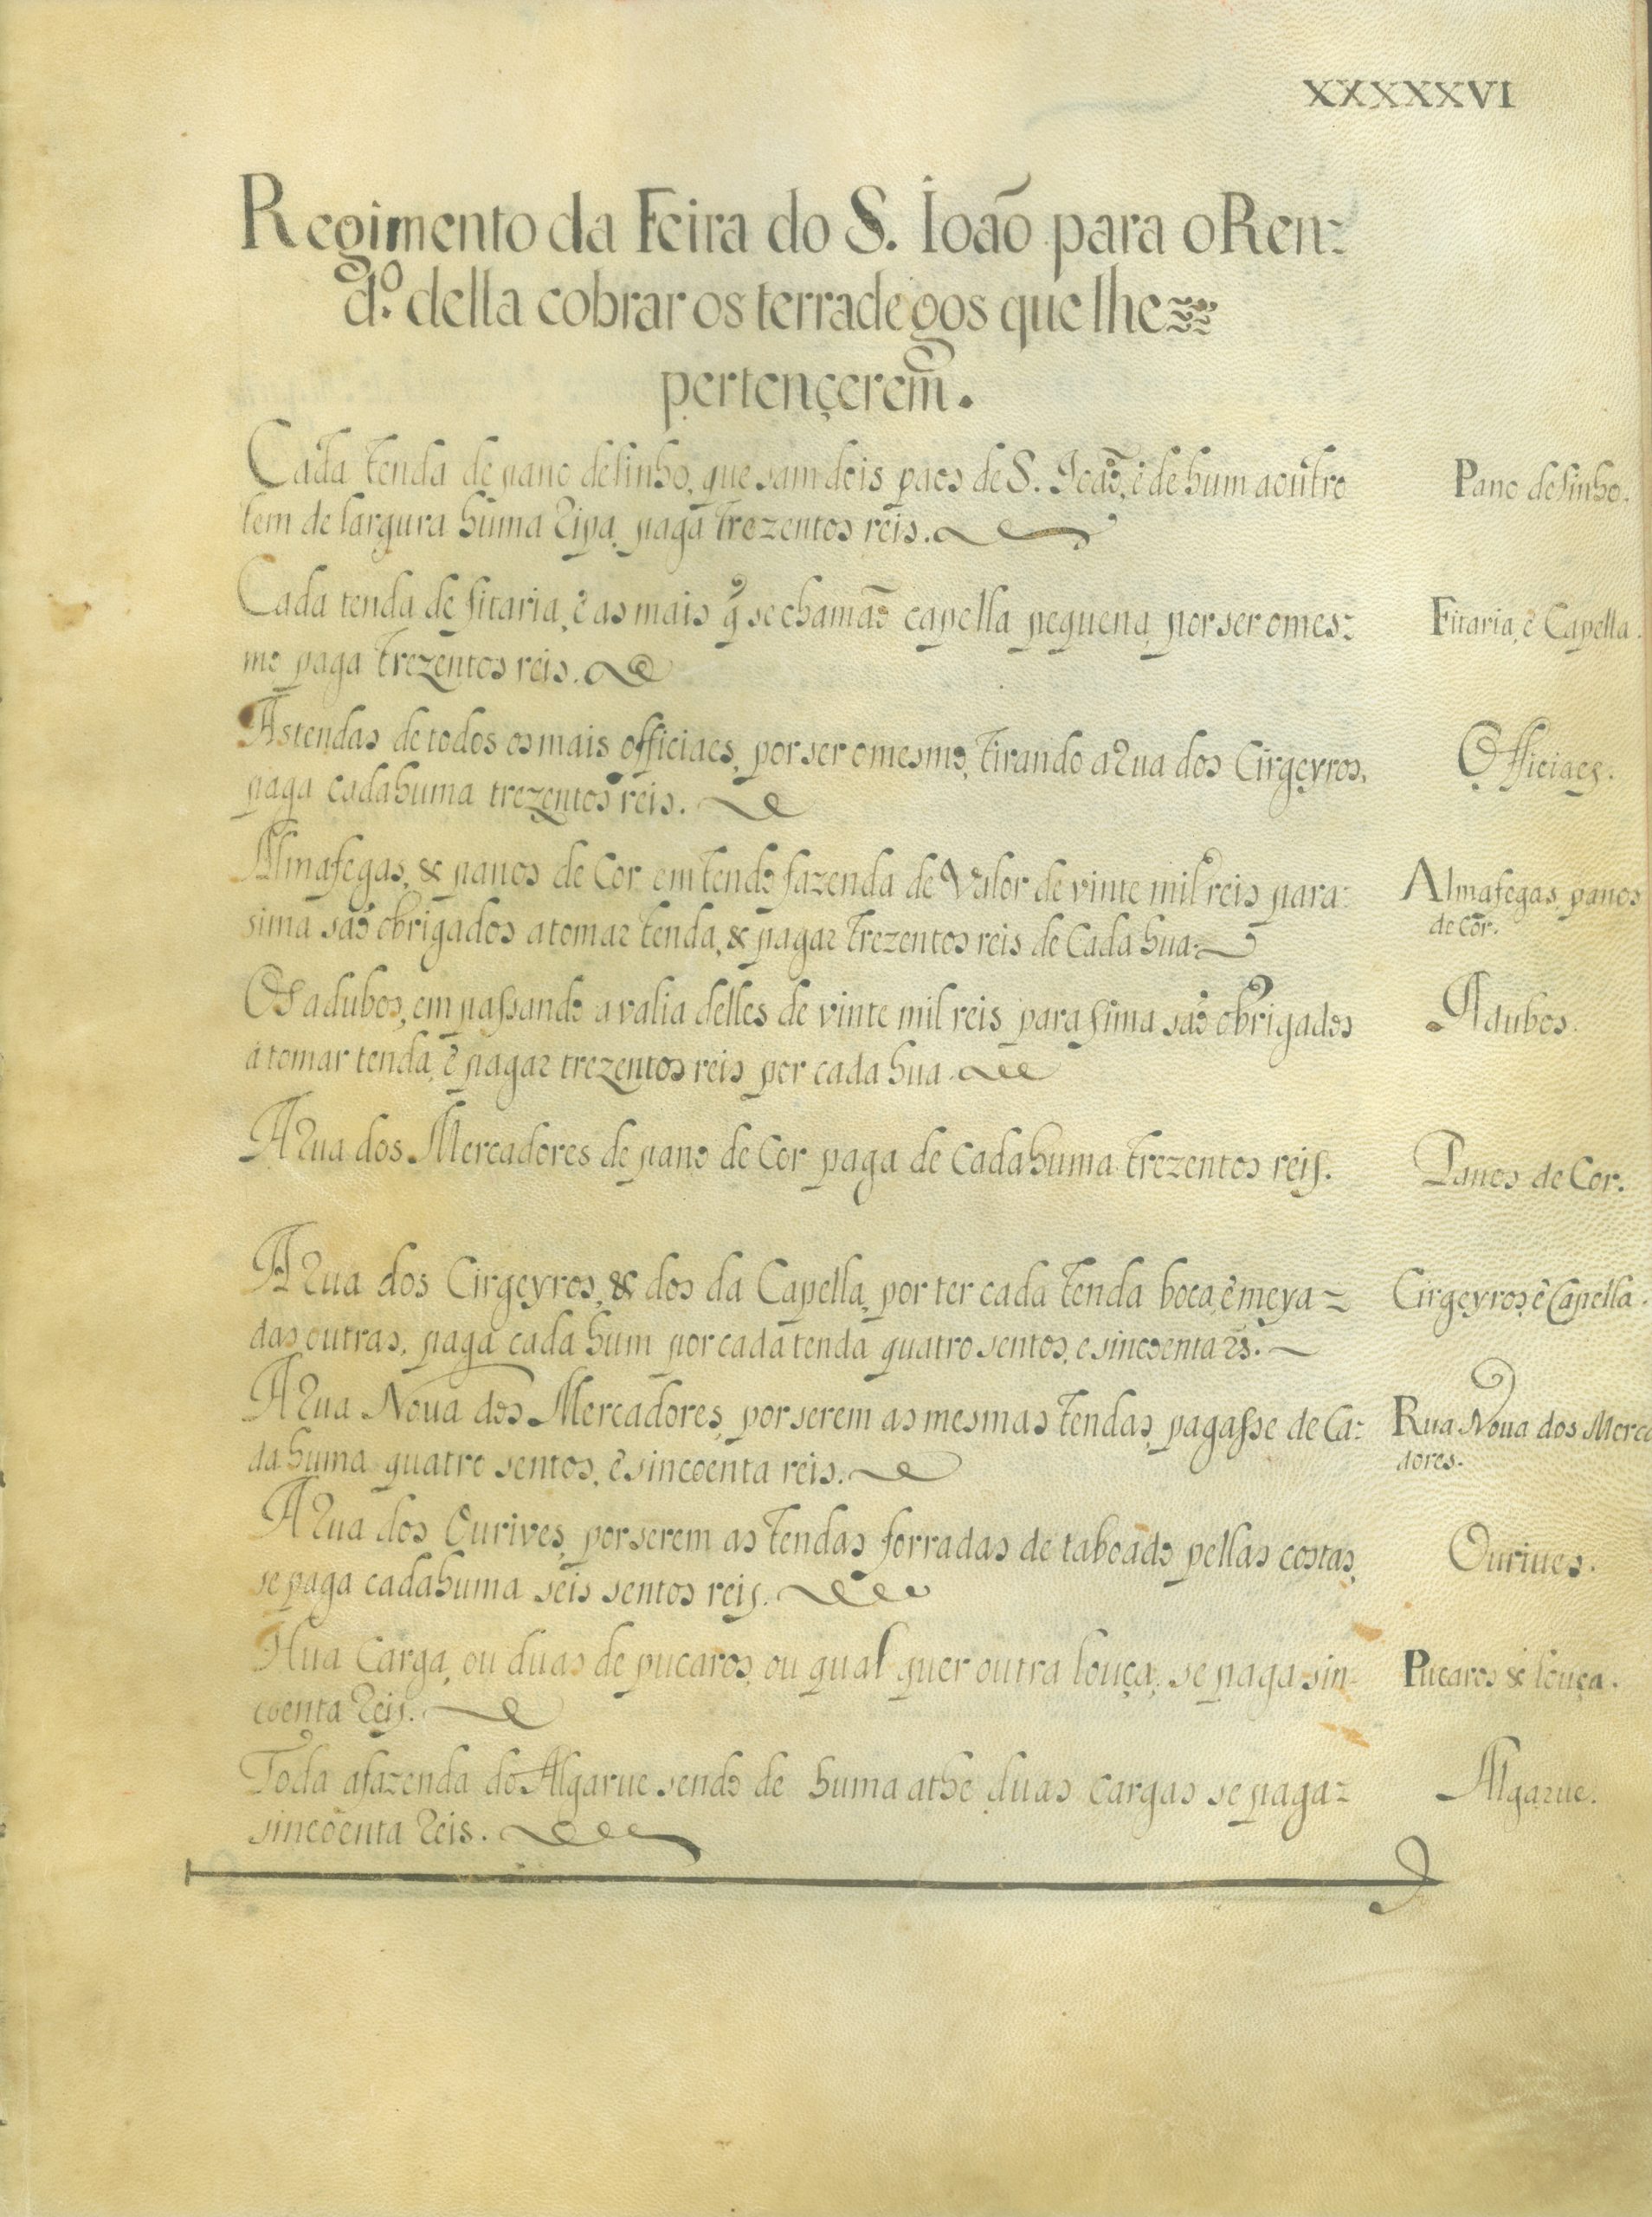 XXXXXXVI
Regimento da Feira do S. Ioaõ para o Ren=
d.º della cobrar os terradegos que lhe
pertençerem̃.
Cada tenda de pano de linho, que sam dois paos de S. Ioaõ, é de hum aoutro
tem de largura huma Ripa, paga trezentos reis.
Cada tenda de fitaria, é as mais q̃ se chamaõ capella pequena, por ser omes:
mo paga trezentos reis.
As tendas de todos os mais officiaes, por ser omesmo, tirando a Rua dos Cirgeyros,
paga cada huma trezentos reis.
Almafegas, & panos de Cor em tendo fazenda de Valor de vinte mil reis para:
sima saõ obrigados atomar tenda, & pagar trezentos reis de Cada hua.
Os adubos, em passando avalia delles de vinte mil reis para sima saõ obrigados
á tomar tenda, é pagar trezentos reis por cada hua.
A Rua dos Mercadores de pano de Cor paga de Cada huma trezentos reis.
A Rua dos Cirgeyros, & dos da Capella, por ter cada tenda boca, é meya =
das outras, paga cada hum por cada tenda quatro sentos, e sincoenta Rs.
A Rua Noua dos Mercadores, por serem as mesmas tendas, pagasse de Ca:
da huma quatro sentos, é sincoenta reis.
A Rua dos Ourives, por serem as tendas forradas de taboado pellas costas,
se paga cada huma seis sentos reis.
Hua Carga, ou duas de pucaros, ou qual quer outra louça, se paga sin-
coenta Reis.
Toda afazenda do Algarue sendo de huma athe duas cargas se paga =
sincoenta Reis.
Pano de linho.
Fitaria, é Capella.
Officiaes.
Almafegas, panos
de Cor.
Adubos.
Panos de Cor.
Cirgeyros, é Capella.
Rua Noua dos Merca
dores.
Ouriues.
Pucaros & louça.
Algarue.